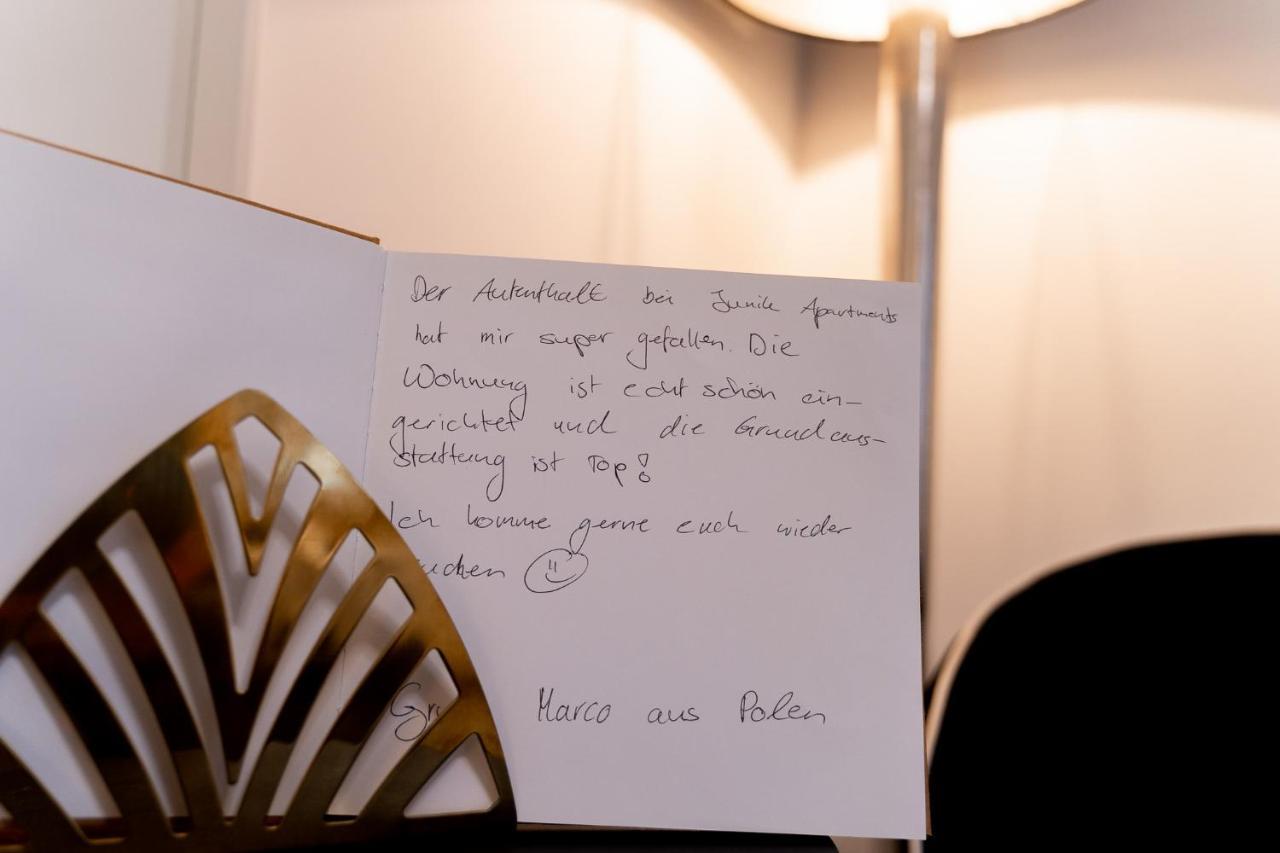 Der Aufenthalt bei Junik Apartments
hat mir super gefallen. Die
Wohnung ist echt schön ein-
gerichtet und die Grundaus-
stattung ist Top!
Ich komme gerne euch wieder
uchen
Gr Marco aus Polen